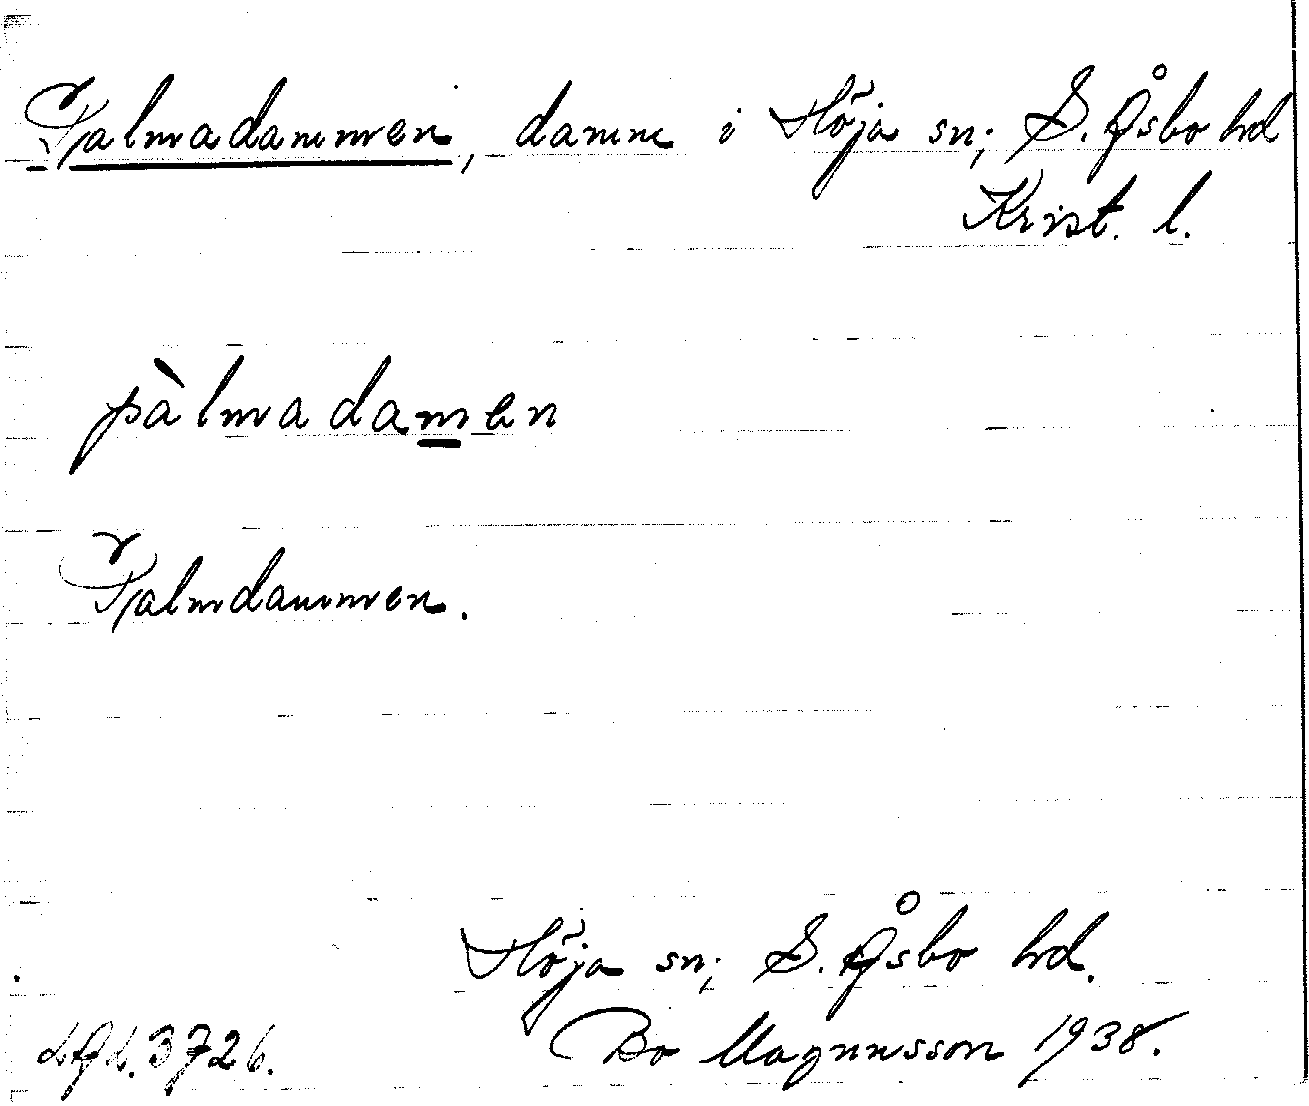 Palmadammen, damm i Höja sn; S. Åsbo hd
Krist. l.
pàlmadamen
Palmdammen.
Höja sn; S. Åsbo hd.
LAL. 3726.
Bo Magnusson 1938.